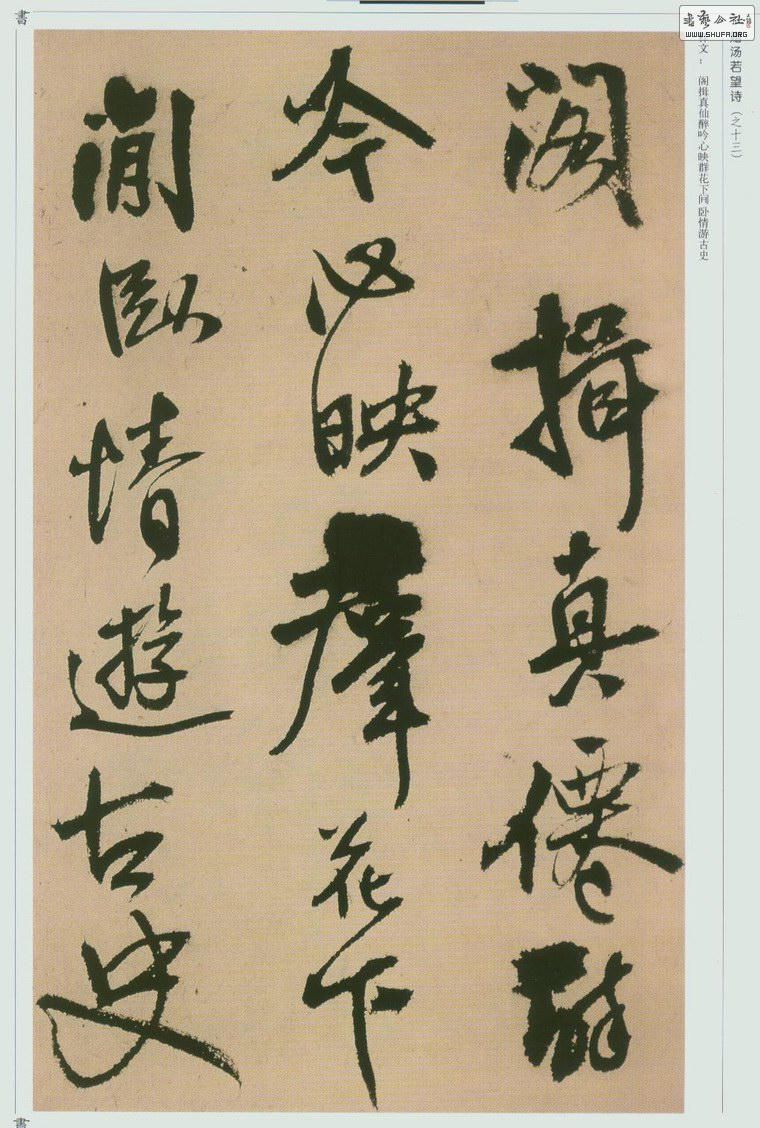 閣揖真僊醉
吟心映羣花下
閒臥情遊古史
汤若望诗（之十三）
文： 阁揖真仙醉吟心映群花下间卧情游古史
書
書藝公社
WWW.SHUFA.ORG
書